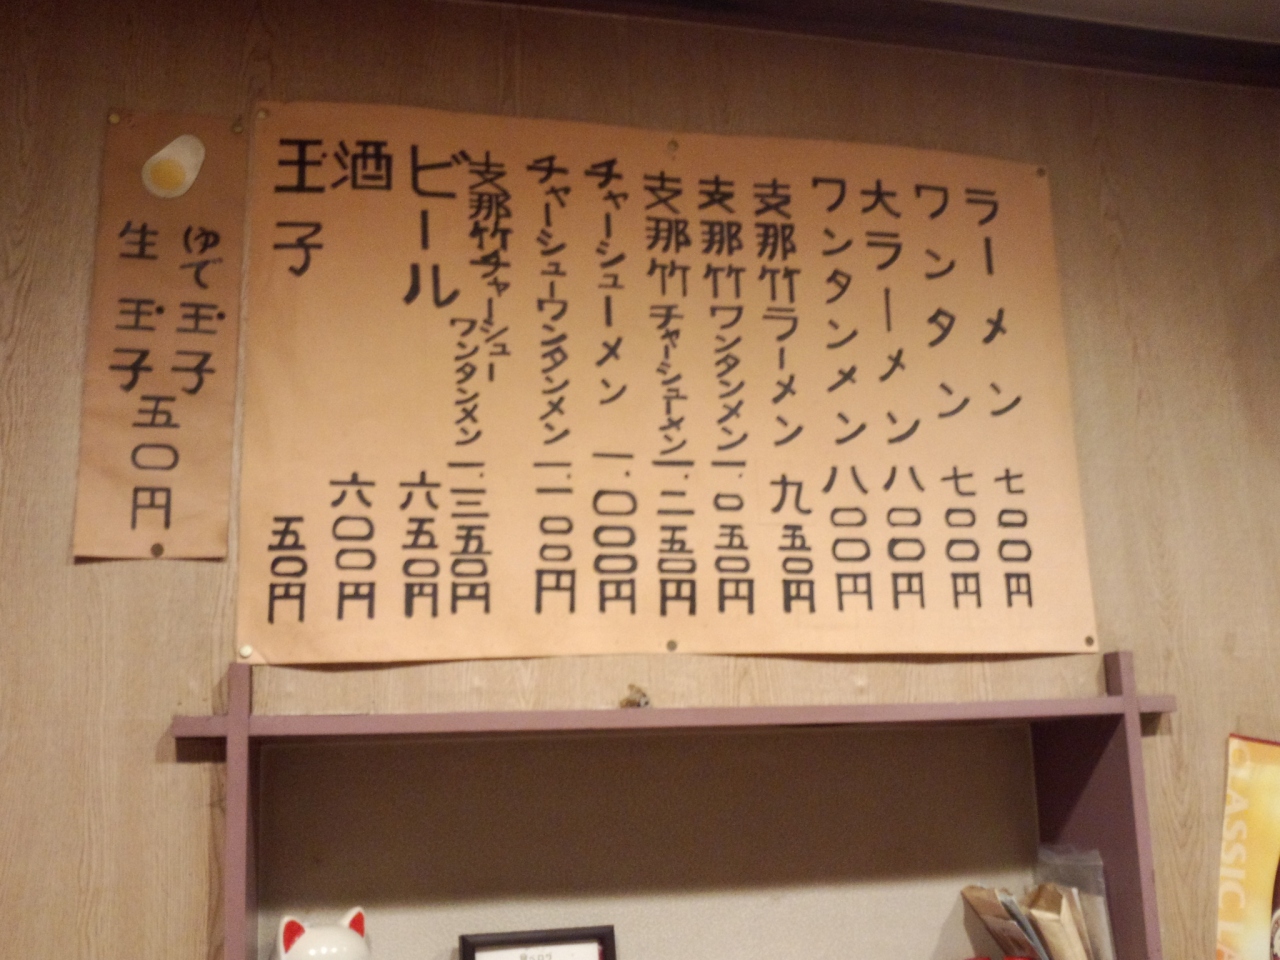 ラーメン 七〇〇円
ワンタン 七〇〇円
大ラーメン 八〇〇円
ワンタンメン 八〇〇円
支那竹ラーメン 九五〇円
支那竹ワンタンメン 一.〇五〇円
支那竹チャーシューメン 一.二五〇円
チャーシューメン 一.〇〇〇円
チャーシューワンタンメン 一.一〇〇円
支那竹チャーシューワンタンメン 一.三五〇円
ビール 六五〇円
酒 六〇〇円
玉子 五〇円
ゆで玉子
生玉子
五〇円